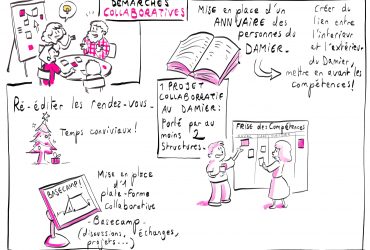 DÉMARCHES
COLLABORATIVES
Mise en place d'un
ANNUAIRE des
personnes du
DAMIER.
Créer du
lien entre
l'interieur
et l'extérieur
du Damier,
mettre en avant les
compétences!
Ré-éditer les rendez-vous
Temps conviviaux!
1 PROJET
COLLABORATIF
AU DAMIER:
Porté par au
moins 2
Structures.
FRISE des Compétences
BASECAMP!
Mise en place
d'1
plate-forme
Collaborative
-Basecamp-
(discussions, Échanges,
projets...)